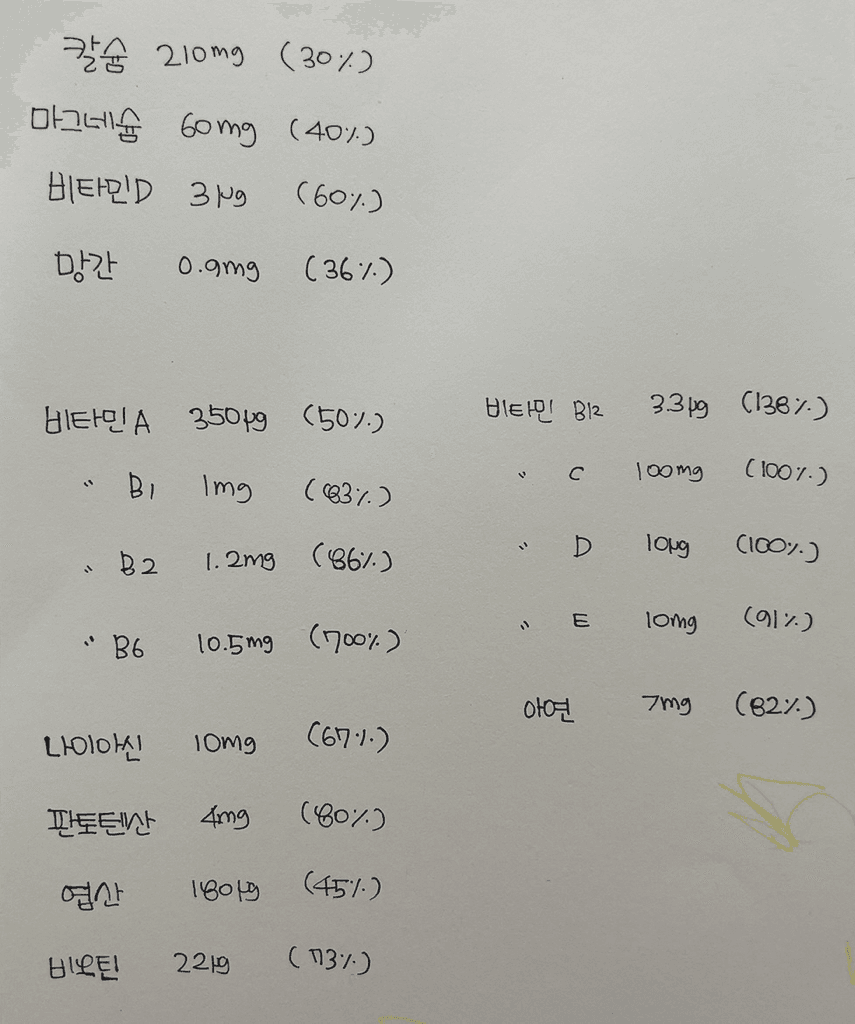 칼슘 210mg (30%)
마그네슘 60mg (40%)
비타민D 3μg (60%)
망간 0.9mg (36%)
비타민A 350μg (50%)
〃 B1 1mg (83%)
〃 B2 1.2mg (86%)
〃 B6 10.5mg (700%)
나이아신 10mg (67%)
판토텐산 4mg (80%)
엽산 180μg (45%)
비오틴 22μg (73%)
비타민 B12 3.3μg (138%)
〃 C 100mg (100%)
〃 D 10μg (100%)
〃 E 10mg (91%)
아연 7mg (82%)